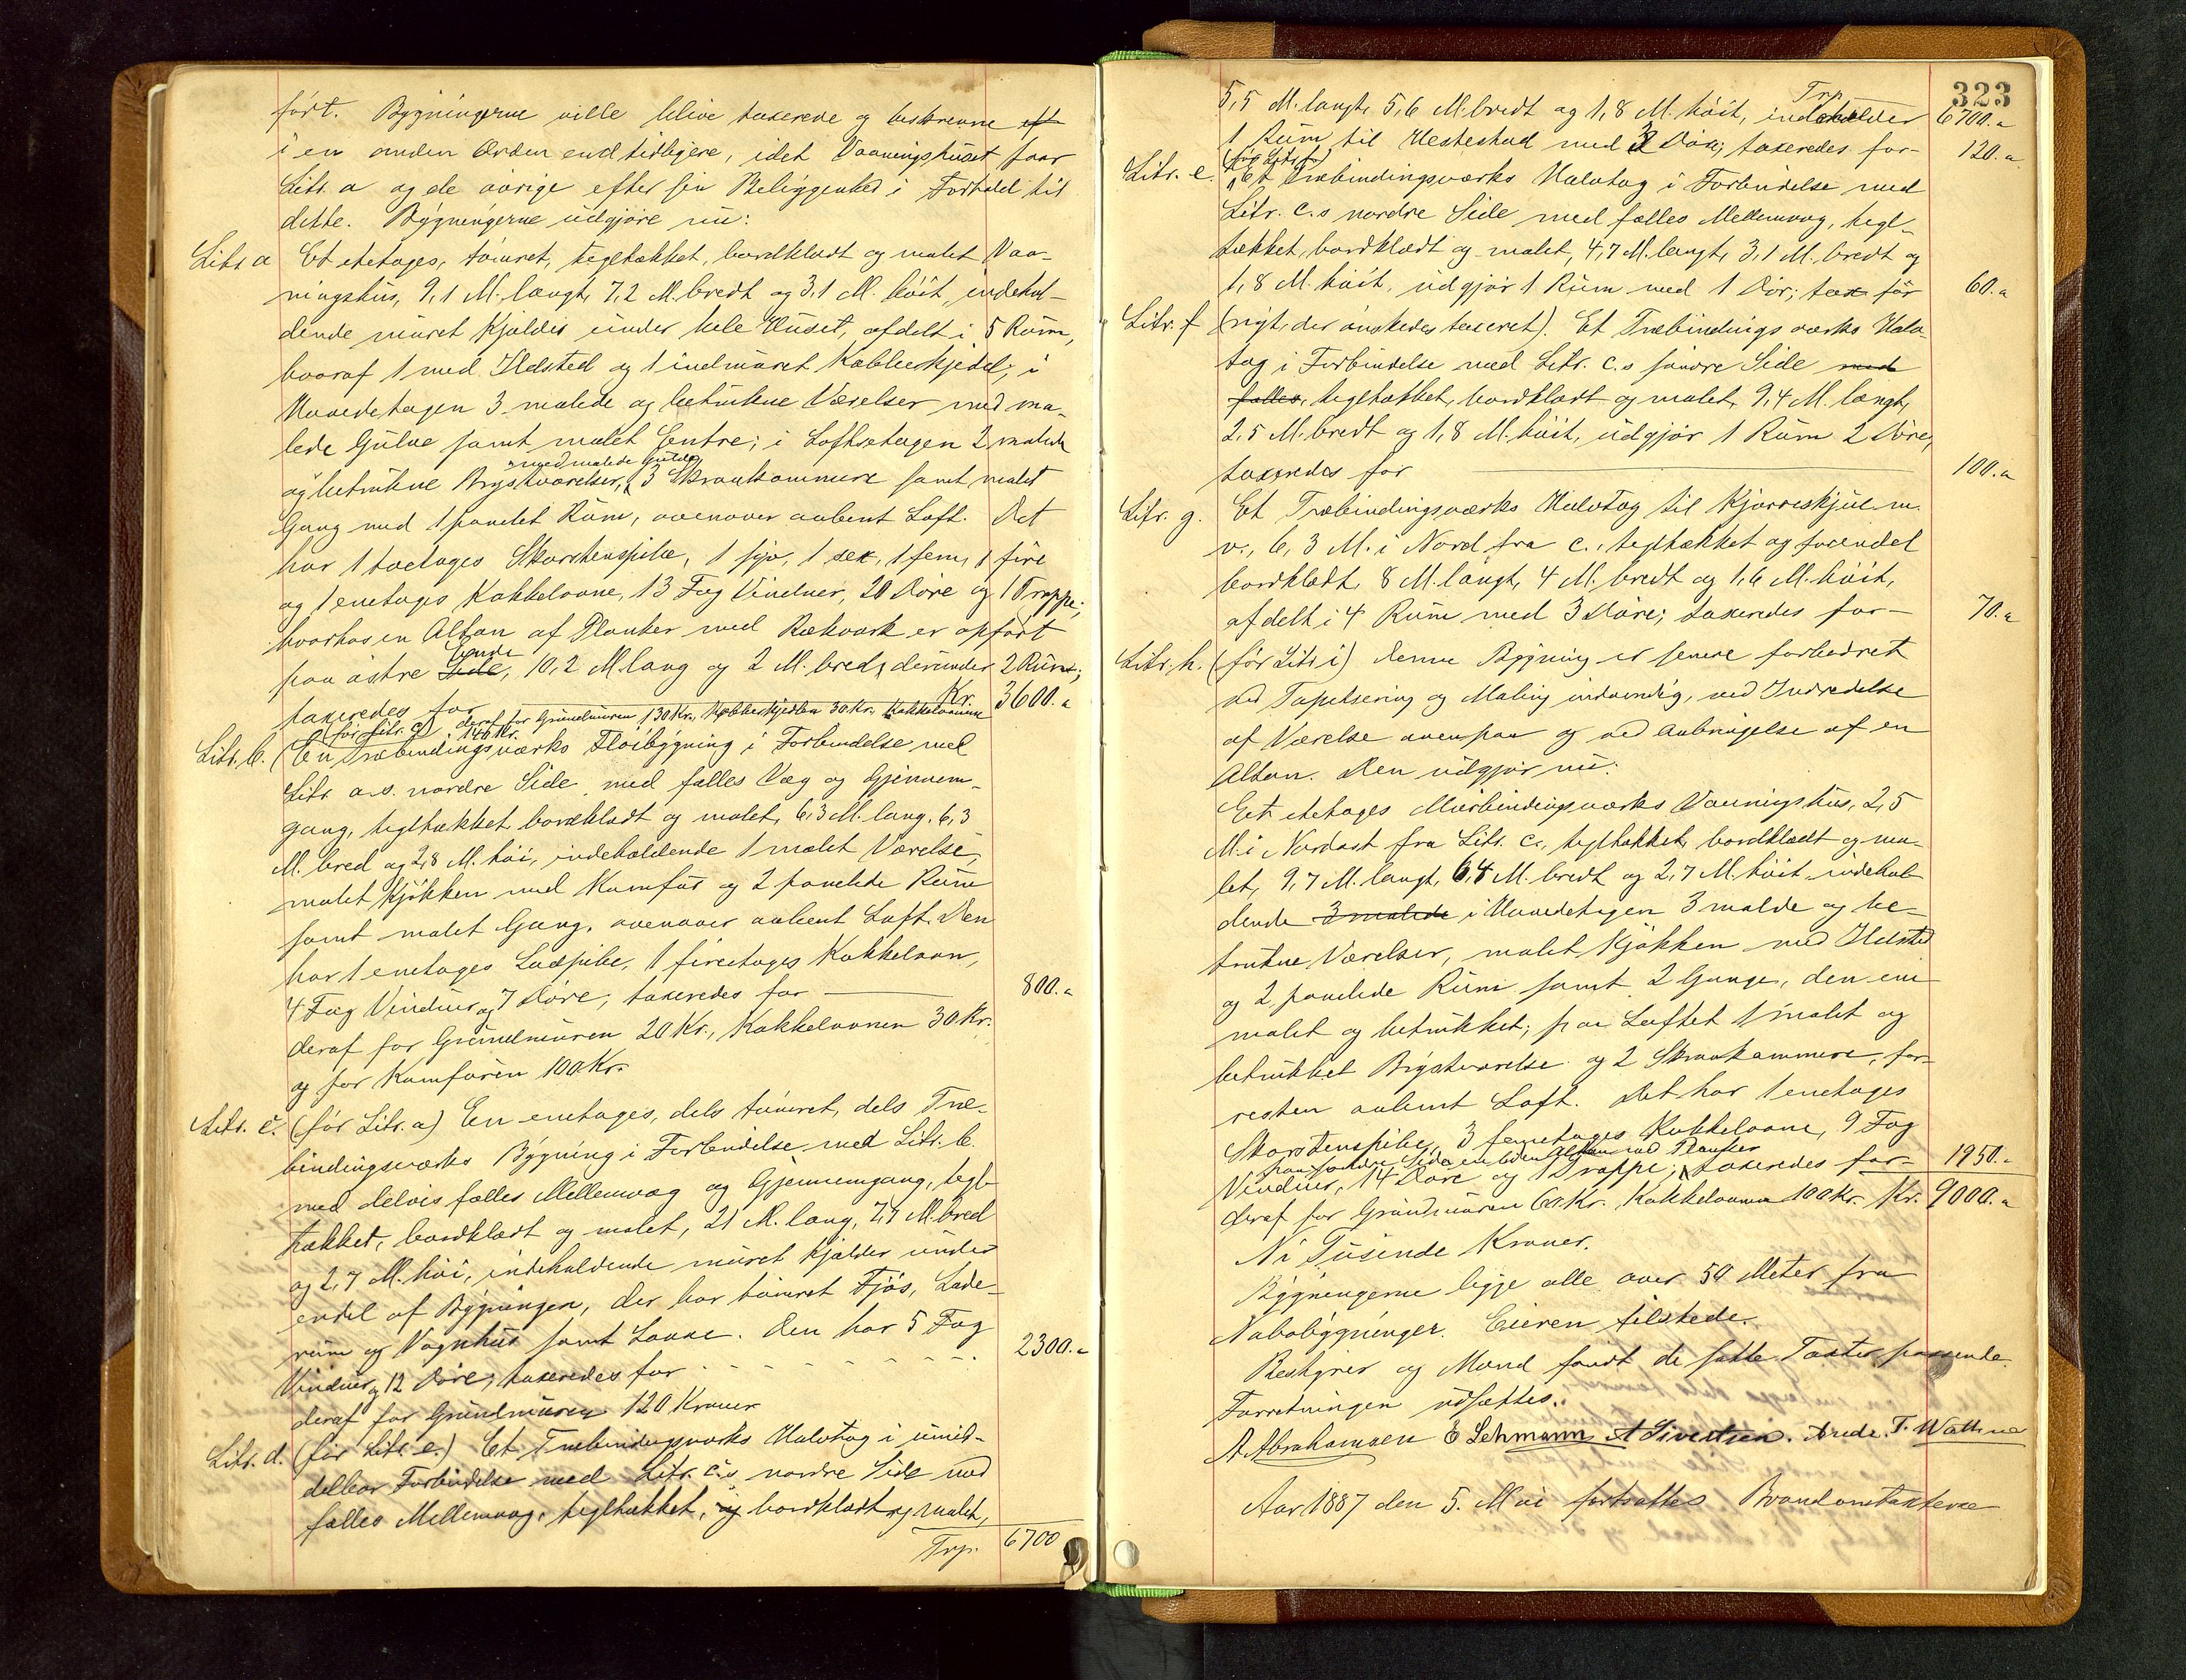 ført. Bygningerne ville blive taxerede og beskrevne eft
i en anden Orden end tidligere, idet Vaaningshuset faar
Litr. a og de øvrige efter sin Beliggenhed i Forhold til
dette. Bygningerne udgjøre nu:
Litr. a Et etetages, tømret, tegltækket, bordklædt og malet Vaa-
ningshus, 9,1 M. langt, 7,2 M. bredt og 3,1 M. høit, indehol-
dende muret Kjælder under hele Huset, afdelt i 5 Rum,
hvoraf 1 med Ildsted og 1 indmuret Kobberkjedel; i
Hovedetagen 3 malede og betrukne Værelser med ma-
lede Gulve samt malet Entre; i Loftsetagen 2 malede
og betrukne Brystværelser, med malede Gulve 3 Skraakammere samt malet
Gang med 1 panelet Rum, ovenover aabent Loft. Det
har 1 toetages Skorstenspibe, 1 syv, 1 sex, 1 fem, 1 fire
og 1 enetages Kakkelovne, 13 Fag Vinduer, 20 Døre og 1 Trappe;
hvorhos en Altan af Planker med Rækværk er opført
paa østre Side Ende, 10,2 M. lang og 2 M. bred, derunder 2 Rum;
taxeredes for Kr. 3600.-
deraf for Grundmuren 130 Kr., Kobberkjedlen 30 Kr., Kakkelovnene 140 Kr.
Litr. b. (før Litr. g) En Træbindingsværks Fløibygning i Forbindelse med
Litr. a.s. nordre Side med fælles Væg og Gjennem-
gang, tegltækket, bordklædt og malet, 6,3 M. lang, 6,3
M. bred og 2,8 M. høi, indeholdende 1 malet Værelse,
malet Kjøkken med Komfur og 2 panelede Rum
samt malet Gang, ovenover aabent Loft. Den
har 1 enetages Ludpibe, 1 fireetages Kakkelovn,
4 Fag Vinduer og 7 Døre; taxeredes for 800.-
deraf for Grundmuren 20 Kr., Kakkelovnen 30 Kr.
og for Komfuren 100 Kr.
Litr. c. (før Litr. a) En enetages, dels tømret, dels Træ-
bindingsværks Bygning i Forbindelse med Litr. b.
med delvis fælles Mellemvæg og Gjennemgang, tegl-
tækket, bordklædt og malet, 21 M. lang, 7,7 M. bred
og 2,7 M. høi, indeholdende muret Kjælder under
endel af Bygningen, der har tømret Fjøs, Lade-
rum og Vognhus samt Laave. Den har 5 Fag
Vinduer og 12 Døre; taxeredes for 2300.-
deraf for Grundmuren 120 Kroner
Litr. d. (før Litr. e.) Et Træbindingsværks Halvtag i umid-
delbar Forbindelse med Litr. c.s nordre Side med
fælles Mellemvæg, tegltækket, og bordklædt og malet,
Trp. 6700
323
5,5 M. langt, 5,6 M. bredt og 1,8 M. høit, indeholder Trp. 6700.-
1 Rum til Hestestad med 3 Døre; taxeredes for- 120.-
Litr. e. (før Litr. f) Et Træbindingsværks Halvtag i Forbindelse med
Litr. c.s nordre Side med fælles Mellemvæg, tegl-
tækket, bordklædt og malet, 4,7 M. langt, 3,1 M. bredt og
1,8 M. høit, udgjør 1 Rum med 1 Dør; tax for 60.-
Litr. f (nyt, der ønskedes taxeret). Et Træbindingsværks Halv-
tag i Forbindelse med Litr. c.s søndre Side med
fælles, tegltækket, bordklædt og malet, 9,4 M. langt,
2,5 M. bredt og 1,8 M. høit, udgjør 1 Rum 2 Døre,
taxeredes for 100.-
Litr. g. Et Træbindingsværks Halvtag til Kjørreskjul m.
v., 6,3 M. i Nord fra c., tegltækket og forendel
bordklædt, 8 M. langt, 4 M. bredt og 1,6 M. høit,
afdelt i 4 Rum med 3 Døre; taxeredes for- 70.-
Litr. h. (før Litr. i) denne Bygning er senere forbedret
ved Tapetsering og Maling indvendig, ved Indredelse
af Værelse ovenpaa og ved Anbringelse af en
Altan. Den udgjør nu:
Et etetages Murbindingsværks Vaaningshus, 2,5
M. i Nordost fra Litr. c., tegltækket, bordklædt og ma-
let, 9,7 M. langt, 6,4 M. bredt og 2,7 M. høit, indehol-
dende 3 malede i Hovedetagen 3 malde og be-
trukne Værelser, malet Kjøkken med Ildsted
og 2 panelede Rum samt 2 Gange, den ene
malet og betrukket; paa Loftet 1 malet og
betrukket Brystværelse og 2 Skraakammere, for-
resten aabent Loft. Det har 1 enetages
Skorstenspibe, 3 femetages Kakkelovne, 9 Fag
Vinduer, 14 Døre og 1 Trappe; paa søndre Side en liden Altan med Planker taxeredes for- 1950.-
deraf for Grundmuren 60 Kr. Kakkelovnene 100 Kr. Kr. 9000.-
Ni Tusende Kroner.
Bygningerne ligge alle over 50 Meter fra
Nabobygninger. Eieren tilstede.
Bestyrer og Mænd fandt de satte Taxter passende.
Forretningen udsættes.
A. Abrahamsen E Lehmann A Sivertsen. Arede. T. Wathne
Aar 1887 den 5. Mai fortsattes Brandomtaxterne